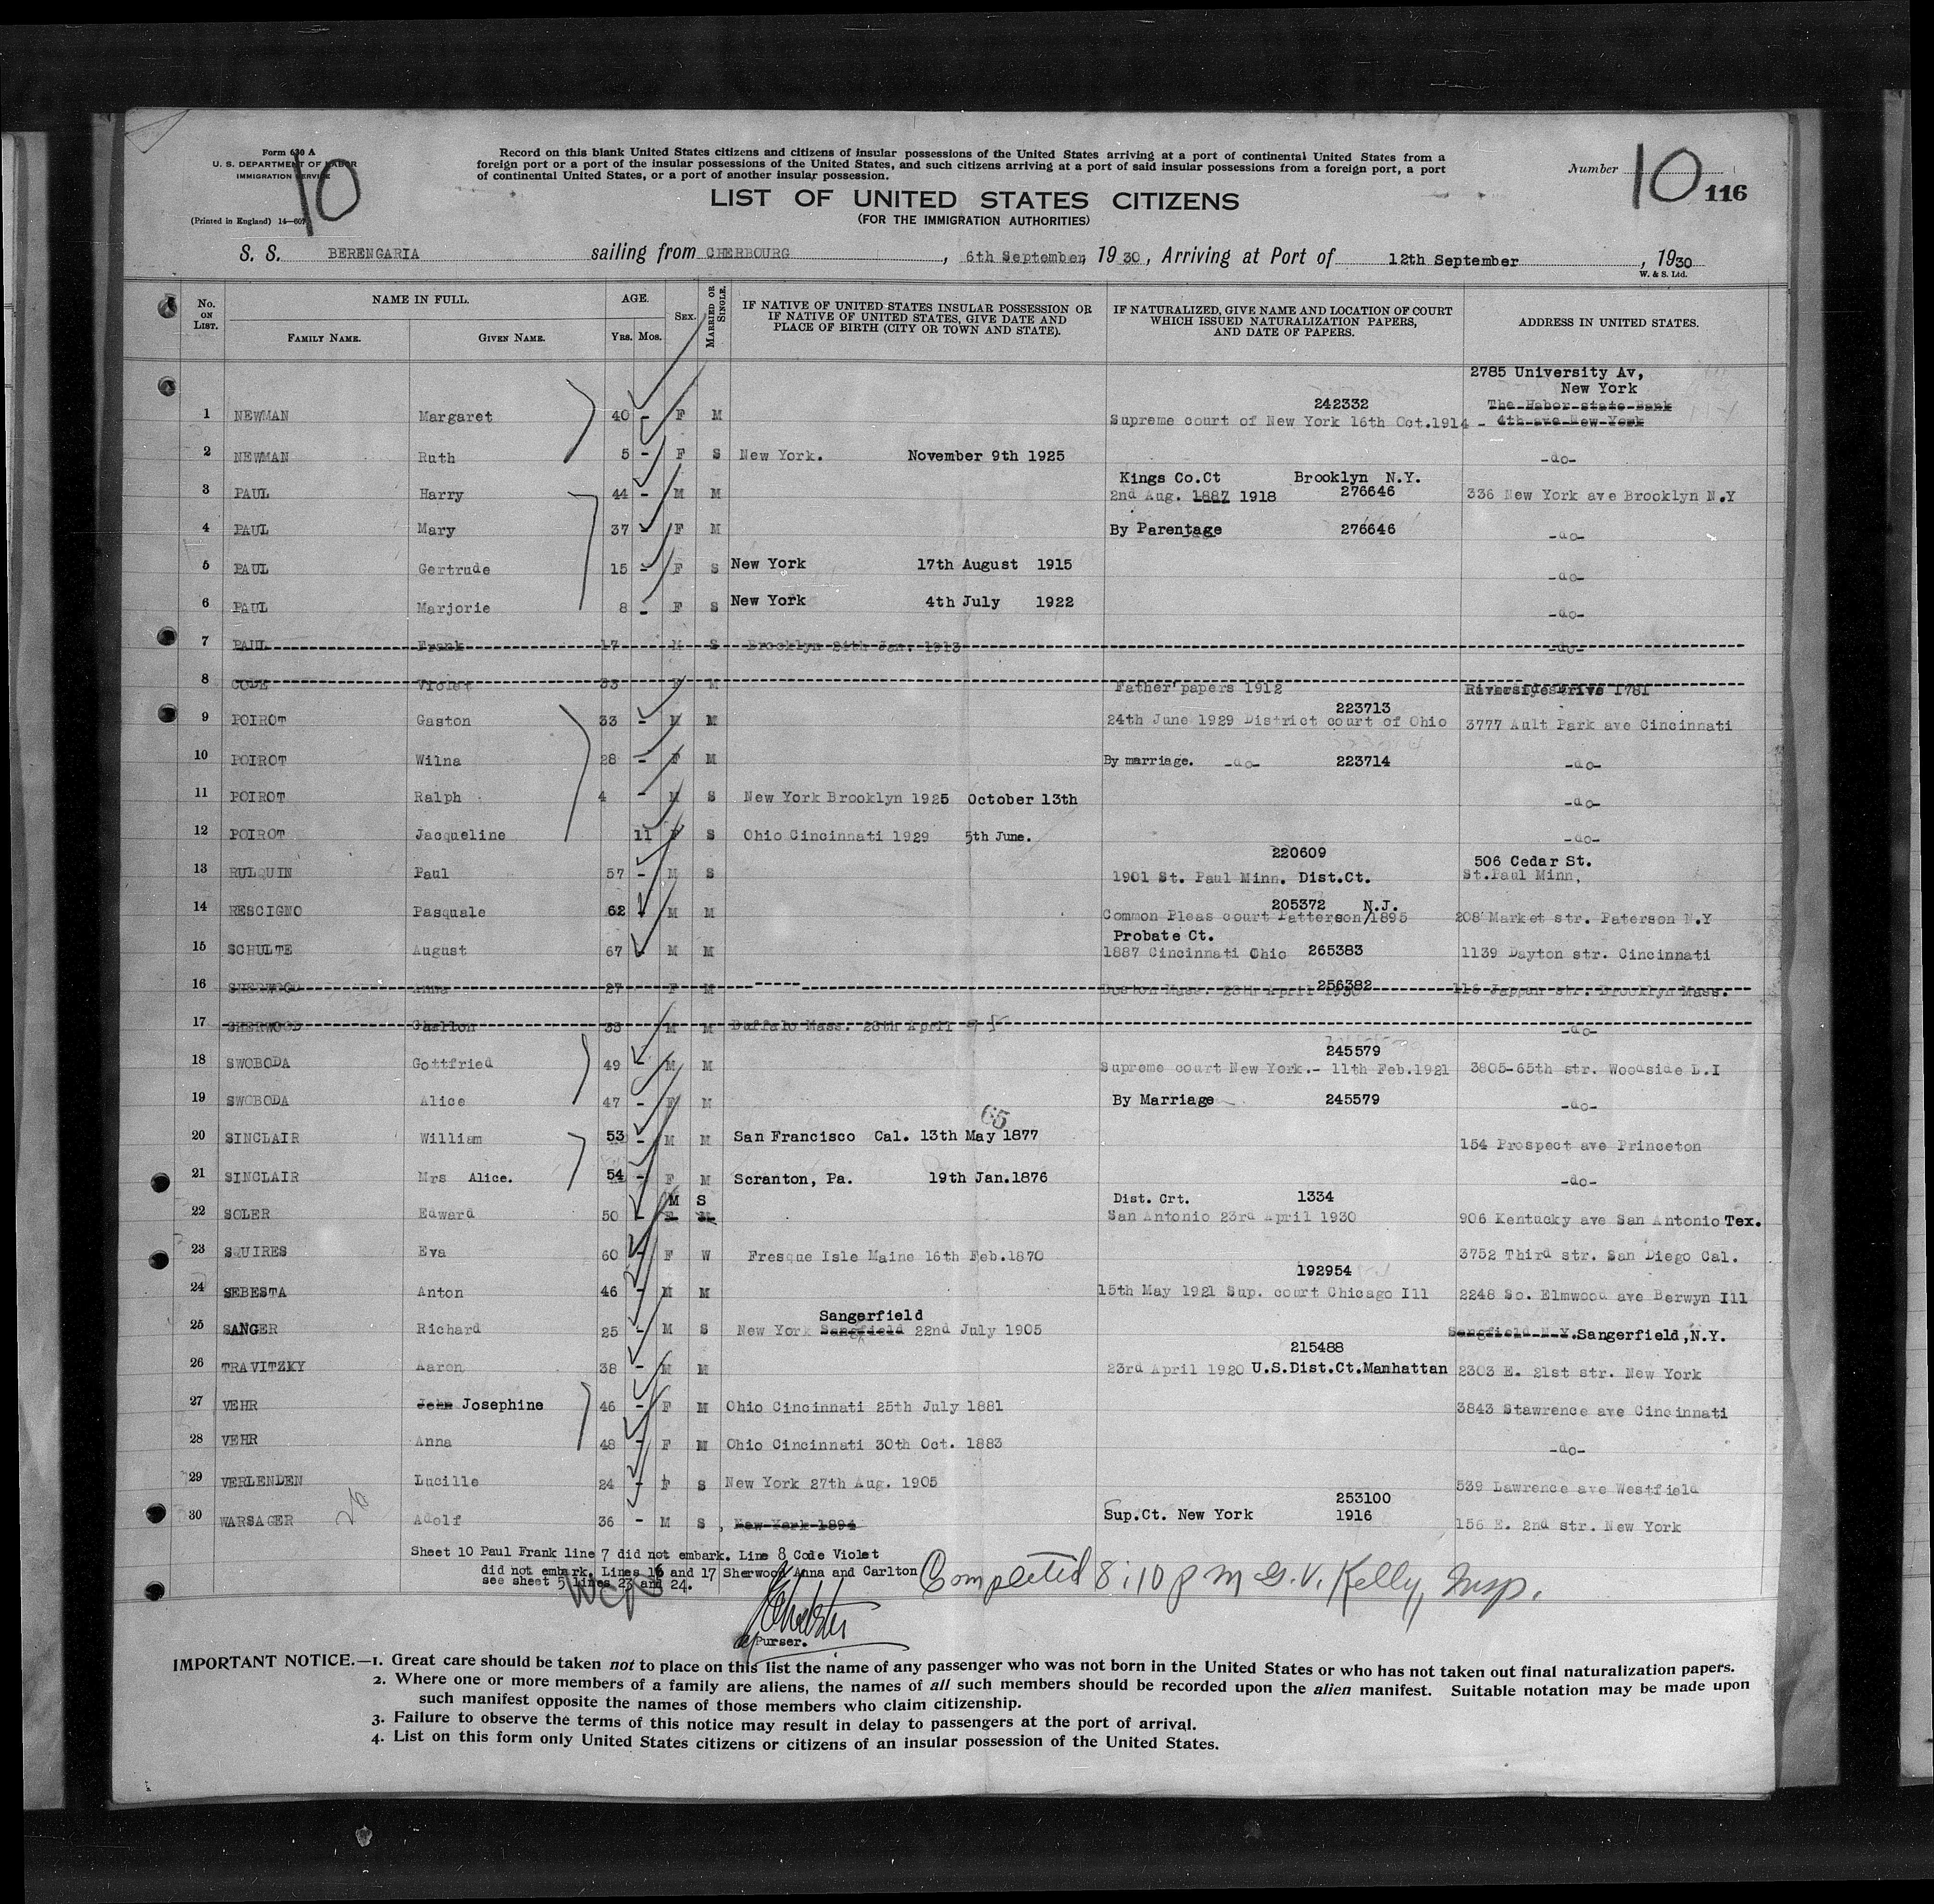 Form 630 A
U. S. DEPARTMENT OF LABOR
IMMIGRATION SERVICE
10
(Printed in England) 14—607
Record on this blank United States citizens and citizens of insular possessions of the United States arriving at a port of continental United States from a
foreign port or a port of the insular possessions of the United States, and such citizens arriving at a port of said insular possessions from a foreign port, a port
of continental United States, or a port of another insular possession.
Number 10 116
LIST OF UNITED STATES CITIZENS
(FOR THE IMMIGRATION AUTHORITIES)
S. S. BERENGARIA sailing from CHERBOURG, 6th September, 1930, Arriving at Port of 12th September, 1930
W. & S. Ltd.
No. ON LIST. NAME IN FULL. AGE. SEX. MARRIED OR SINGLE. IF NATIVE OF UNITED STATES INSULAR POSSESSION OR IF NATIVE OF UNITED STATES, GIVE DATE AND PLACE OF BIRTH (CITY OR TOWN AND STATE). IF NATURALIZED, GIVE NAME AND LOCATION OF COURT WHICH ISSUED NATURALIZATION PAPERS, AND DATE OF PAPERS. ADDRESS IN UNITED STATES.
FAMILY NAME. GIVEN NAME. YRS. MOS.
2785 University Av,
New York
242332 The Habor state Bank
1 NEWMAN Margaret 40 - F M Supreme court of New York 16th Oct.1914 - 4th ave New York
2 NEWMAN Ruth 5 - F S New York. November 9th 1925 -do-
Kings Co.Ct Brooklyn N.Y.
3 PAUL Harry 44 - M M 2nd Aug. 1887 1918 276646 336 New York ave Brooklyn N.Y
4 PAUL Mary 37 - F M By Parentage 276646 -do-
5 PAUL Gertrude 15 - F S New York 17th August 1915 -do-
6 PAUL Marjorie 8 - F S New York 4th July 1922 -do-
7 PAUL Frank 17 M S Brooklyn 24th Jan. 1913 -do-
8 CODE Violet 33 F M Father' papers 1912 Riverside Drive 1781
223713
9 POIROT Gaston 33 - M M 24th June 1929 District court of Ohio 3777 Ault Park ave Cincinnati
10 POIROT Wilna 28 - F M By marriage. -do- 223714 -do-
11 POIROT Ralph 4 - M S New York Brooklyn 1925 October 13th -do-
12 POIROT Jacqueline 11 F S Ohio Cincinnati 1929 5th June. -do-
220609 506 Cedar St.
13 RULQUIN Paul 57 - M S 1901 St. Paul Minn. Dist.Ct. St.Paul Minn,
205372 N.J.
14 RESCIGNO Pasquale 62 - M M Common Pleas court Patterson/1895 208 Market str. Paterson N.Y
Probate Ct.
15 SCHULTE August 67 - M M 1887 Cincinnati Ohio 265383 1139 Dayton str. Cincinnati
256382
16 SHERWOOD Anna 27 F M Boston Mass. 28th April 1930 116 Jappan str. Brooklyn Mass.
17 SHERWOOD Chalton 33 M M Buffalo Mass. 28th April -do-
245579
18 SWOBODA Gottfried 49 - M M Supreme court New York.- 11th Feb.1921 3805-65th str. Woodside L.I
19 SWOBODA Alice 47 - F M By Marriage 245579 -do-
65
20 SINCLAIR William 53 - M M San Francisco Cal. 13th May 1877 154 Prospect ave Princeton
21 SINCLAIR Mrs Alice. 54 - F M Scranton, Pa. 19th Jan.1876 -do-
M S Dist. Crt. 1334
22 SOLER Edward 50 - F M San Antonio 23rd April 1930 906 Kentucky ave San Antonio Tex.
23 SQUIRES Eva 60 - F W Fresque Isle Maine 16th Feb.1870 3752 Third str. San Diego Cal.
192954
24 SEBESTA Anton 46 - M M 15th May 1921 Sup. court Chicago Ill 2248 So. Elmwood ave Berwyn Ill
Sangerfield
25 SANGER Richard 25 - M S New York Sangfield 22nd July 1905 Sangfield N.Y. Sangerfield,N.Y.
215488
26 TRAVITZKY Aaron 38 - M M 23rd April 1920 U.S.Dist.Ct.Manhattan 2303 E. 21st str. New York
27 VEHR John Josephine 46 - F M Ohio Cincinnati 25th July 1881 3843 Stawrence ave Cincinnati
28 VEHR Anna 48 - F M Ohio Cincinnati 30th Oct. 1883 -do-
29 VERLENDEN Lucille 24 - F S New York 27th Aug. 1905 539 Lawrence ave Westfield
253100
30 WARSAGER 26 Adolf 36 - M S , New York 1894 Sup.Ct. New York 1916 156 E. 2nd str. New York
Sheet 10 Paul Frank line 7 did not embark. Line 8 Code Violet
did not embark. Lines 16 and 17 Sherwood Anna and Carlton
see sheet 5 lines 23 and 24.
Completed 8:10 pm G.V. Kelly, Insp.
Purser.
IMPORTANT NOTICE.—1. Great care should be taken not to place on this list the name of any passenger who was not born in the United States or who has not taken out final naturalization papers.
2. Where one or more members of a family are aliens, the names of all such members should be recorded upon the alien manifest. Suitable notation may be made upon
such manifest opposite the names of those members who claim citizenship.
3. Failure to observe the terms of this notice may result in delay to passengers at the port of arrival.
4. List on this form only United States citizens or citizens of an insular possession of the United States.